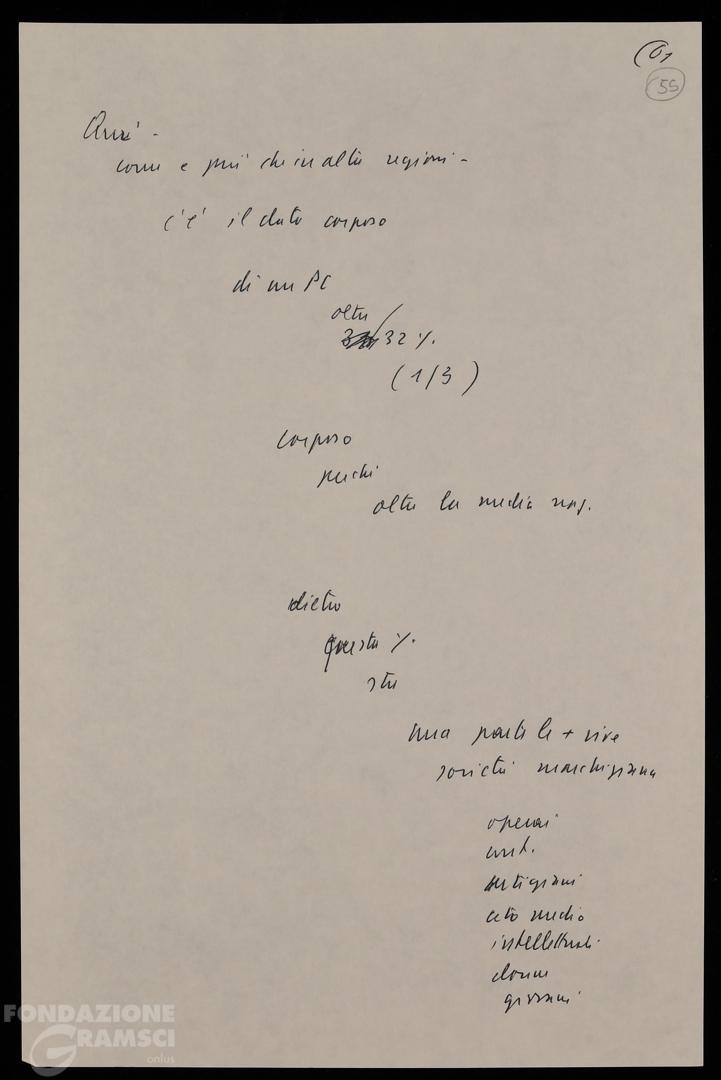 (01
55
Qui -
come e più che in altre regioni -
c'è il dato corposo
di un PC
oltre
32 %.
(1/3)
corposo
perché
oltre la media naz.
dietro
questa %.
sta
una parte le + vive
società marchigiana
operai
cont.
artigiani
ceto medio
intellettuali
donne
giovani
FONDAZIONE
GRAMSCI
onlus